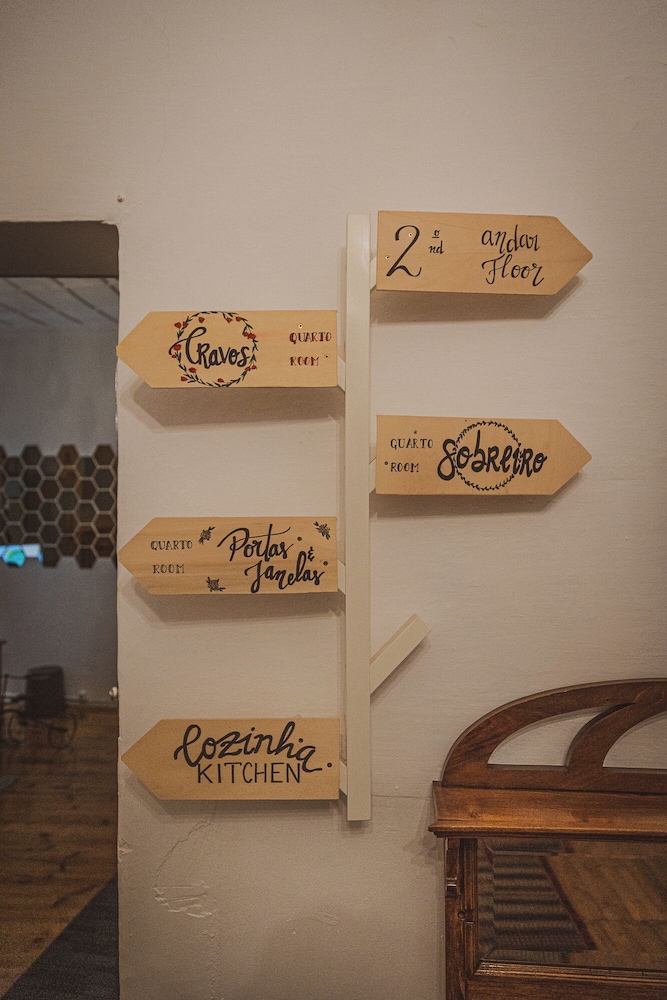 2º nd andar
Floor
Cravos QUARTO
ROOM
QUARTO Sobreiro
ROOM
QUARTO Portas &
ROOM Janelas
Cozinha
KITCHEN